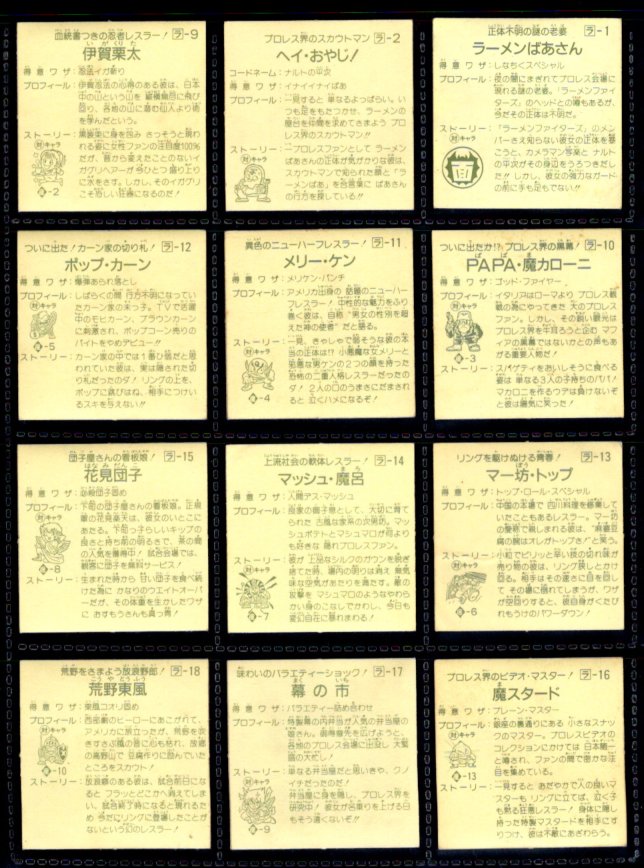 血統書つきの忍者レスラー! ラ-9
いがぐりた
伊賀栗太
得意ワザ:忍法イガ斬り
プロフィール:伊賀忍法の心得のある彼は、日本
中の山という山を 縦横無尽に飛び
回り、各地の山に潜む仙人より術
を学んだという。
ストーリー:黒装束に身を包み さっそうと現わ
れる姿に女性ファンの注目度100%
だが、昔から変えたことのないイ
ガグリヘアーが今ひとつ 盛り上り
に水をさす。しかし、そのイガグリ
こそ恐しい狂器になるのだ!
対キャラ
-2
プロレス界のスカウトマン ラ-2
ヘイ・おやじ!
コードネーム:ナルトの平次
得意ワザ:イナイイナイばあ
プロフィール:一見すると 単なるよっぱらい。い
つも足をもたつかせ、ラーメンの
屋台を仲間を求めてさまよう プロ
レス界のスカウトマン!!
ストーリー:一プロレスファンとして ラーメン
ばあさんの正体が気がかりな彼は、
スカウトマンで知られた顔と「ラ
ーメンばあ」を合言葉に ばあさん
の行方を探している!!
対キャラ
正体不明の謎の老婆 ラ-1
ラーメンばあさん
得意ワザ:しなちくスペシャル
プロフィール:夜の闇にまぎれてプロレス会場に
現れる謎の老婆。「ラーメンファイ
ターズ」のヘッドとの噂もあるが、
今だその正体は不明だ。
ストーリー:「ラーメンファイターズ」のメン
バーさえ知らない彼女の正体を暴
こうと、カメラマン写楽と ナルト
の平次がその身辺をうろつきだし
た!! しかし、彼女の強力なガード
の前に手も足でない!!
対キャラ
ついに出た!カーン家の切り札! ラ-12
ポップ・カーン
得意ワザ:爆弾あられ落とし
プロフィール:しばらくの間 行方不明になってい
たカーン家の末っ子。TVで活躍
中のモヒカーン、ブラウンカーン
に刺激され、ポップコーン売りの
バイトをやめデビュー!!
ストーリー:カーン家の中では1番ひ弱だと思
われていた彼は、実は隠された切
り札だったのダ! リングの上を、
ポップに跳びはね、相手につけい
るスキを与えない!!
対キャラ
-5
異色のニューハーフレスラー! ラ-11
メリー・ケン
得意ワザ:メリケン・パンチ
プロフィール:アメリカ出身の 話題のニューハー
フレスラー! 中性的な魅力をふり
巻く彼は、自称“男女の性別を超
えた神の使者”だと語る。
ストーリー:一見、きゃしゃで弱そうな彼の本
当の正体は!? 小悪魔な女メリーと
邪悪な男ケンの2つの顔を持った
恐怖の二重人格レスラーだったの
ダ! 2人の口のうまさにだまされ
ると 泣くハメになるぞ!
対キャラ
-4
ついに出たか!? プロレス界の黒幕! ラ-10
PAPA・魔カローニ
得意ワザ:ゴッド・ファイヤー
プロフィール:イタリアはローマより プロレス観
戦の為にやってきた 大のプロレス
ファン。しかし、その鋭い眼光は
プロレス界を牛耳ろうと企む マフ
ィアの黒幕ではないかとの声もあ
がる重要人物だ!
ストーリー:スパゲティをおいしそうに食べる
姿は 単なる3人の子持ちのパパ!
マカロニを作るウデは負けないぞ
と彼は陽気に笑った!
対キャラ
-3
団子屋さんの看板娘 ラ-15
はなみだんご
花見団子
得意ワザ:必殺団子固め
プロフィール:下町の団子屋さんの看板娘。正規
軍の花見楽天は、彼女のいとこに
あたる。下町っ子らしいキップの
良さと持ち前の明るさで、茶の間
の人気を獲得中! 試合会場では、
観客に団子を無料サービス!
ストーリー:生まれた時から 甘い団子を食べ続
けた為に かなりのウエイトオーバ
ーだが、その体重を生かしたワザ
に おすもうさんも真っ青!
対キャラ
-8
上流社会の軟体レスラー! ラ-14
まろ
マッシュ・魔呂
得意ワザ:人間アス・マッシュ
プロフィール:良家の御子息として、大切に育て
られた 古風な家系の次男坊。マッ
シュポテトとマシュマロが何より
も好きな 隠れプロレスファン。
ストーリー:彼が 上品なシルクのガウンを脱ぎ
捨てた時、場内の明りは消え 無気
味な空気があたりを満たす。敵の
攻撃を マシュマロのようなやわら
かい身のこなしでかわし、今日も
変幻自在に暴れまわる!
対キャラ
-7
リングを駆けぬける青春! ラ-13
ぼう
マー坊・トップ
得意ワザ:トップ・ロール・スペシャル
プロフィール:中国の本場で 四川料理を修業して
いたこともあるレスラー。マー坊
の愛称で親しまれる彼は、“麻婆豆
腐の腕はオレがトップさ!”と笑う。
ストーリー:小粒でピリッと辛い技の切れ味が
売り物の彼は、リング狭しとかけ
回る。相手はその速さに目を回し
て その場に倒れてしまうが、ワザ
が空回りすると、彼自身がくたび
れもうけのパワーダウン!
対キャラ
-6
荒野をさまよう放浪野郎! ラ-18
こうやとうふう
荒野東風
得意ワザ:東風コオリ固め
プロフィール:西部劇のヒーローにあこがれて、
アメリカに旅立ったが、荒野を吹
きすさぶ風の音に心も枯れ、故郷
の高野山で 豆腐作りに励んでいた
ところをスカウト!
ストーリー:放浪癖のある彼は、試合前日にな
ると フラッとどこかへ消えてしま
い、試合終了時になると現れるた
め 今だにリングに登場したことが
ないという幻のレスラー!
対キャラ
-10
味わいのバラエティーショップ! ラ-17
まく いち
幕の市
得意ワザ:バラエティー詰め合わせ
プロフィール:特製幕の内弁当が人気の弁当屋の
娘さん。御得意先を広げようと、
各地のプロレス会場に出没し 大奮
闘の大忙し!
ストーリー:単なる弁当屋だと思いきや、クノ
イチだったのだ!
弁当屋に身を隠し、プロレス界を
研究中! 彼女が台乗りを上げる日も
そう遠くないぞ!!
対キャラ
-9
プロレス界のビデオ・マスター! ラ-16
ま
魔スタード
得意ワザ:ブレーン・マスター
プロフィール:銀座の裏通りにある 小さなスナッ
クのマスター。プロレスビデオの
コレクションにかけては 日本随一
と噂され、ファンの間で密かな注
目を集めている。
ストーリー:一見すると あだやかで人の良いマス
ターも リングに立てば、泣く子も
黙る狂悪レスラー! 身体に隠し
持った特製マスタードを相手にす
りつけ、彼は不敵にあざわらう。
対キャラ
-13